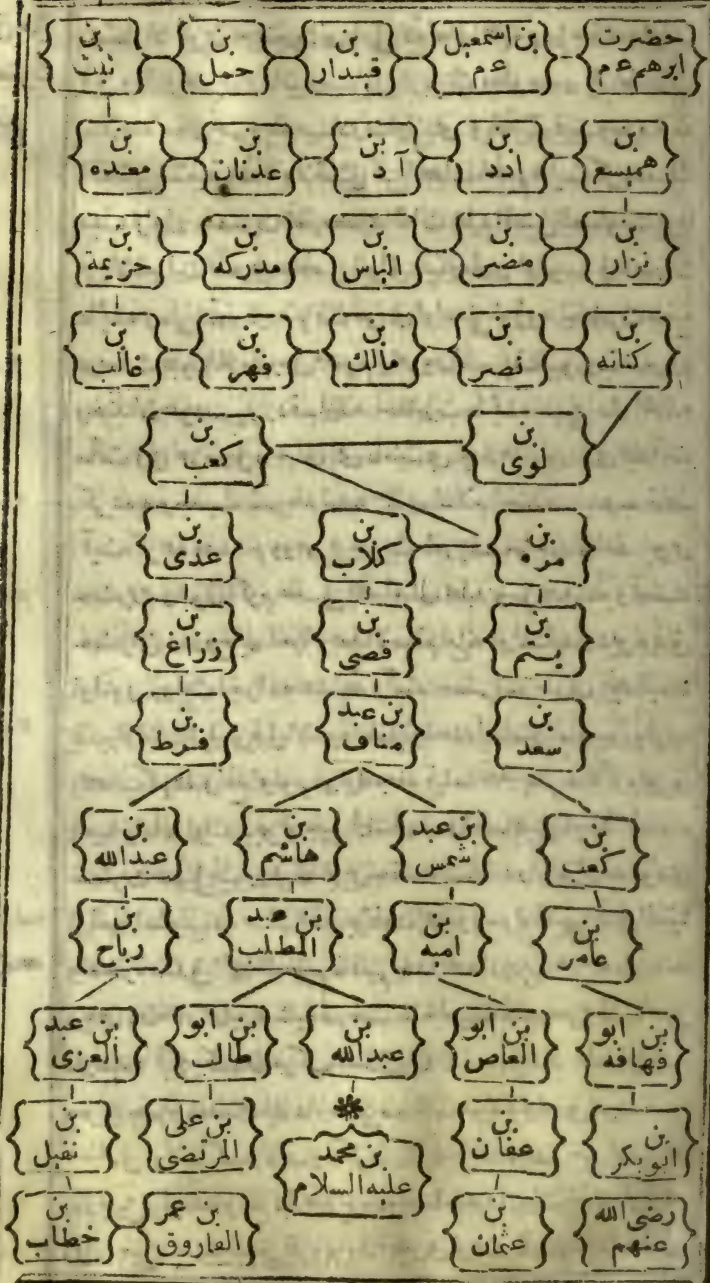 حضرت ابرهم ع م
بن اسمعيل ع م
بن قيدار
بن حمل
بن نبت
بن هميسع
بن ادد
بن آد
بن عدنان
بن معده
بن نزار
بن مضر
بن الياس
بن مدركه
بن حزيمة
بن كنانه
بن نصر
بن مالك
بن فهر
بن غالب
بن لوى
بن كعب
بن مره
بن كلاب
بن عدى
بن يستم
بن قصى
بن زراغ
بن سعد
بن عبد مناف
بن فرط
بن كعب
بن عبد شمس
بن هاشم
بن عبدالله
بن عامر
بن اميه
بن عبد المطلب
بن رباح
بن ابو قهافه
بن ابو العاص
بن عبدالله
بن ابو طالب
بن عبد العزى
بن ابوبكر
بن عفان
بن محمد عليه السلام
بن على المرتضى
بن نفيل
رضى الله عنهم
بن عثمان
بن عمر الفاروق
بن خطاب